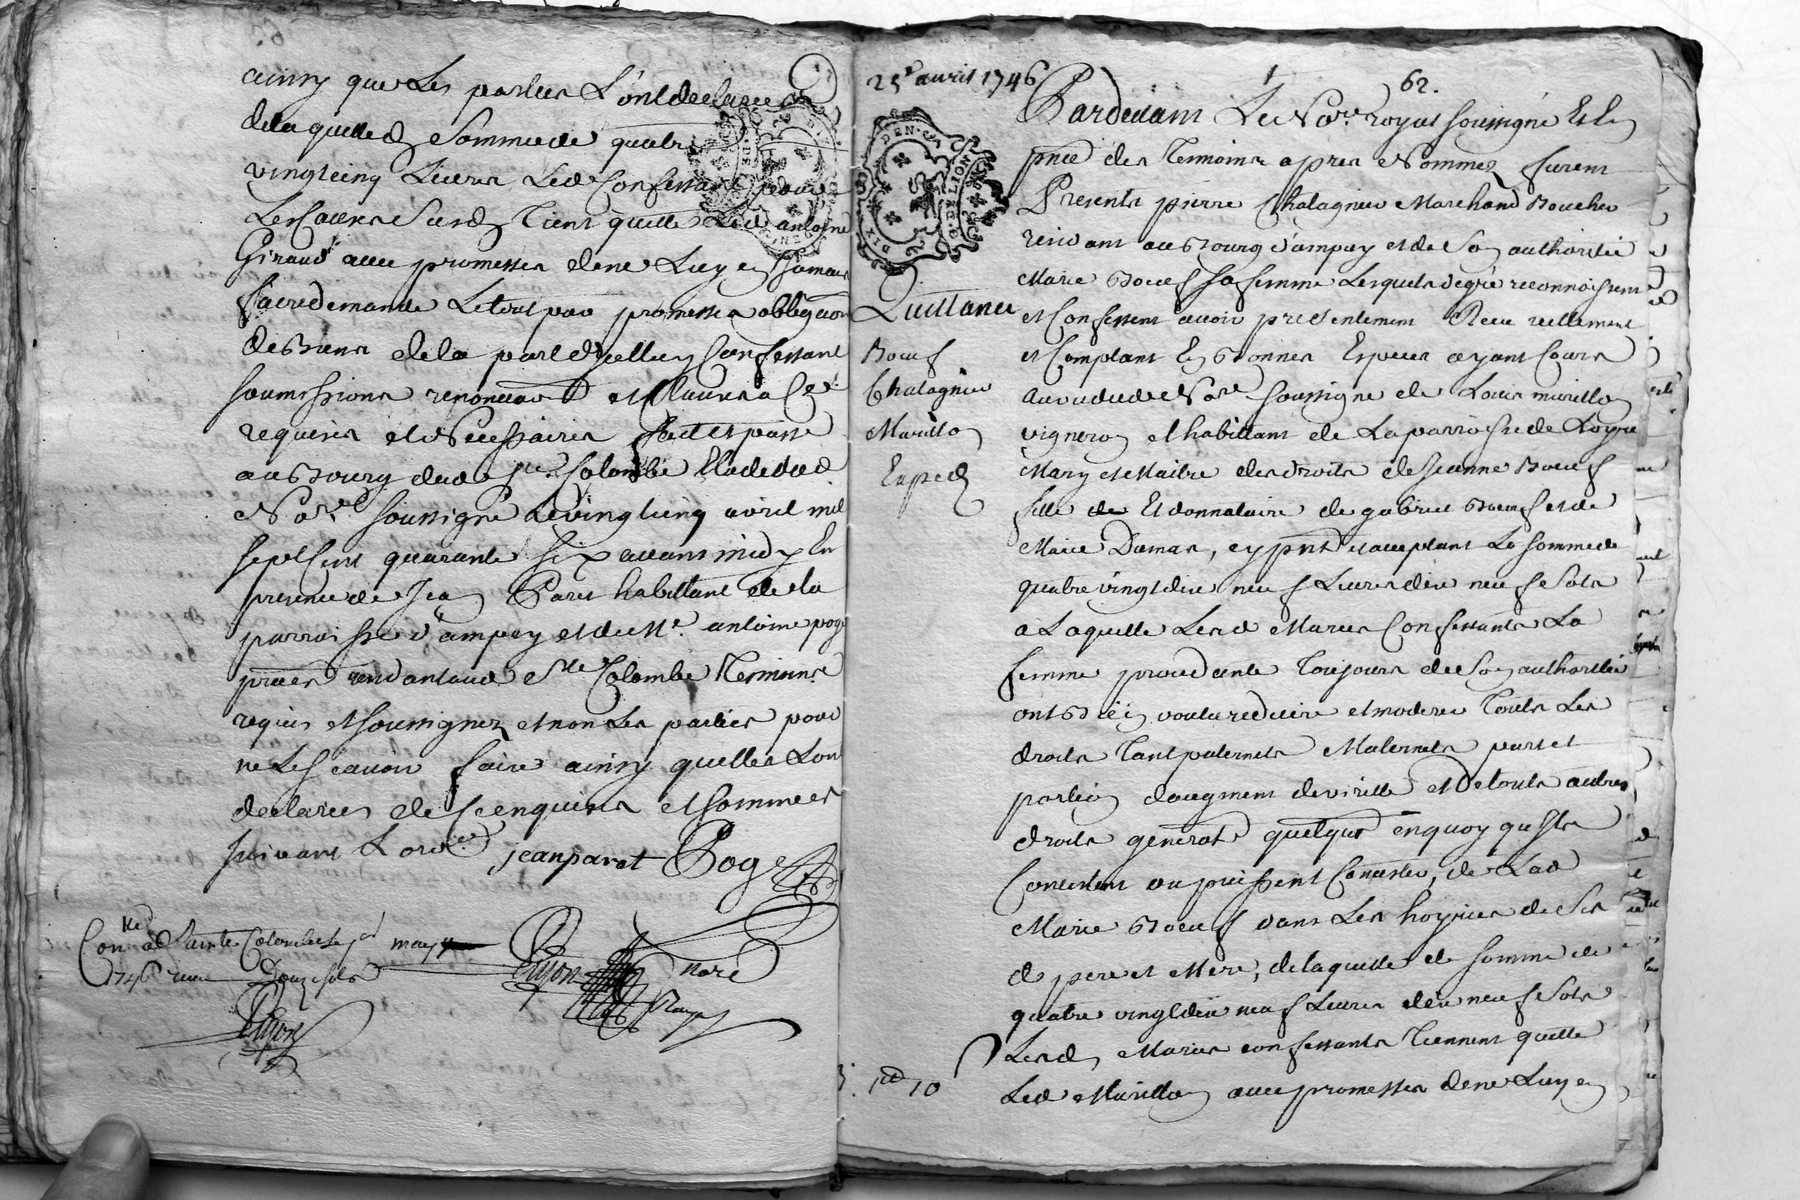 ainsy que Les parties L'ont declarée
de laquelle d. Somme de quatre
vingt cinq Livres Led Confessant pour
Les Causes Susd. Tient quitte Led antoine
Giraud avec promesses de ne Luy en Jamais
faire demande Le tout par promesses obligaõn
de biens de la part dycelluy Confessant
soumissions renonciaõn et Clauses a Ce
requises et Necessaires fait et passé
au Bourg dud. Ste Colombe Etude dud
Nore soussigné Le vingt cinq avril mil
sept Cent quarante six avant midy En
presence de Jean Paret habittant de la
parroisse d'ampuy et de Me. antoine poge
residant aud Ste Colombe Tesmoins
requis et soussignez et non Les parties pour
ne Le scavoir faire ainsy quelles L'on
declarées de Ce enquises et sommées
suivant L'ord.ce jean paret Poge
Con.lle a Sainte Colombe Le may
1746 reçu Douze sols
25e avril 1746
Quittance
Boeuf
Chalagnier
Murillon
Exped
62.
Pardevant Le Nore royal soussigné Et En
pnce des Temoins apres Nommez furent
Presents pierre Chatagnier Marchand Boucher
residant au Bourg d'ampuy et de Son authorité
Marie Boeuf sa femme Lesquels de gré reconnoissent
et Confessent avoir presentement Receu reellement
et Comptant En Bonnes Especes ayant Cours
au vu du de Nore soussigné de Louis murillon
vigneron et habittant de La parroisse de Loyre
Mary et Maitre des droits de Jeanne Boeuf
fille de Et donnataire de gabriel Boeuf et de
Marie Dumas, cy pnt et acceptant La Somme de
quatre vingt dix neuf Livres dix neuf Sols
a Laquelle Lesd Maries Confessants La
femme procedante Toujours de Son authorité
ont Bien voulu reduire et moderer Touts Les
droits Tant paternels Maternels part et
portion daugment de virille et De touts autres
droits generals quelque en quoy qu'ils
Consistent ou puissent Consister, de Lad
Marie Boeuf dans Les hoyries de Ses
d pere et Mere, de laquelle de somme de
quatre vingt dix neuf Livres dix neuf Sols
Lesd Maries confessants Tiennent quitte
Led Murillon avec promesses de ne Luy en
10